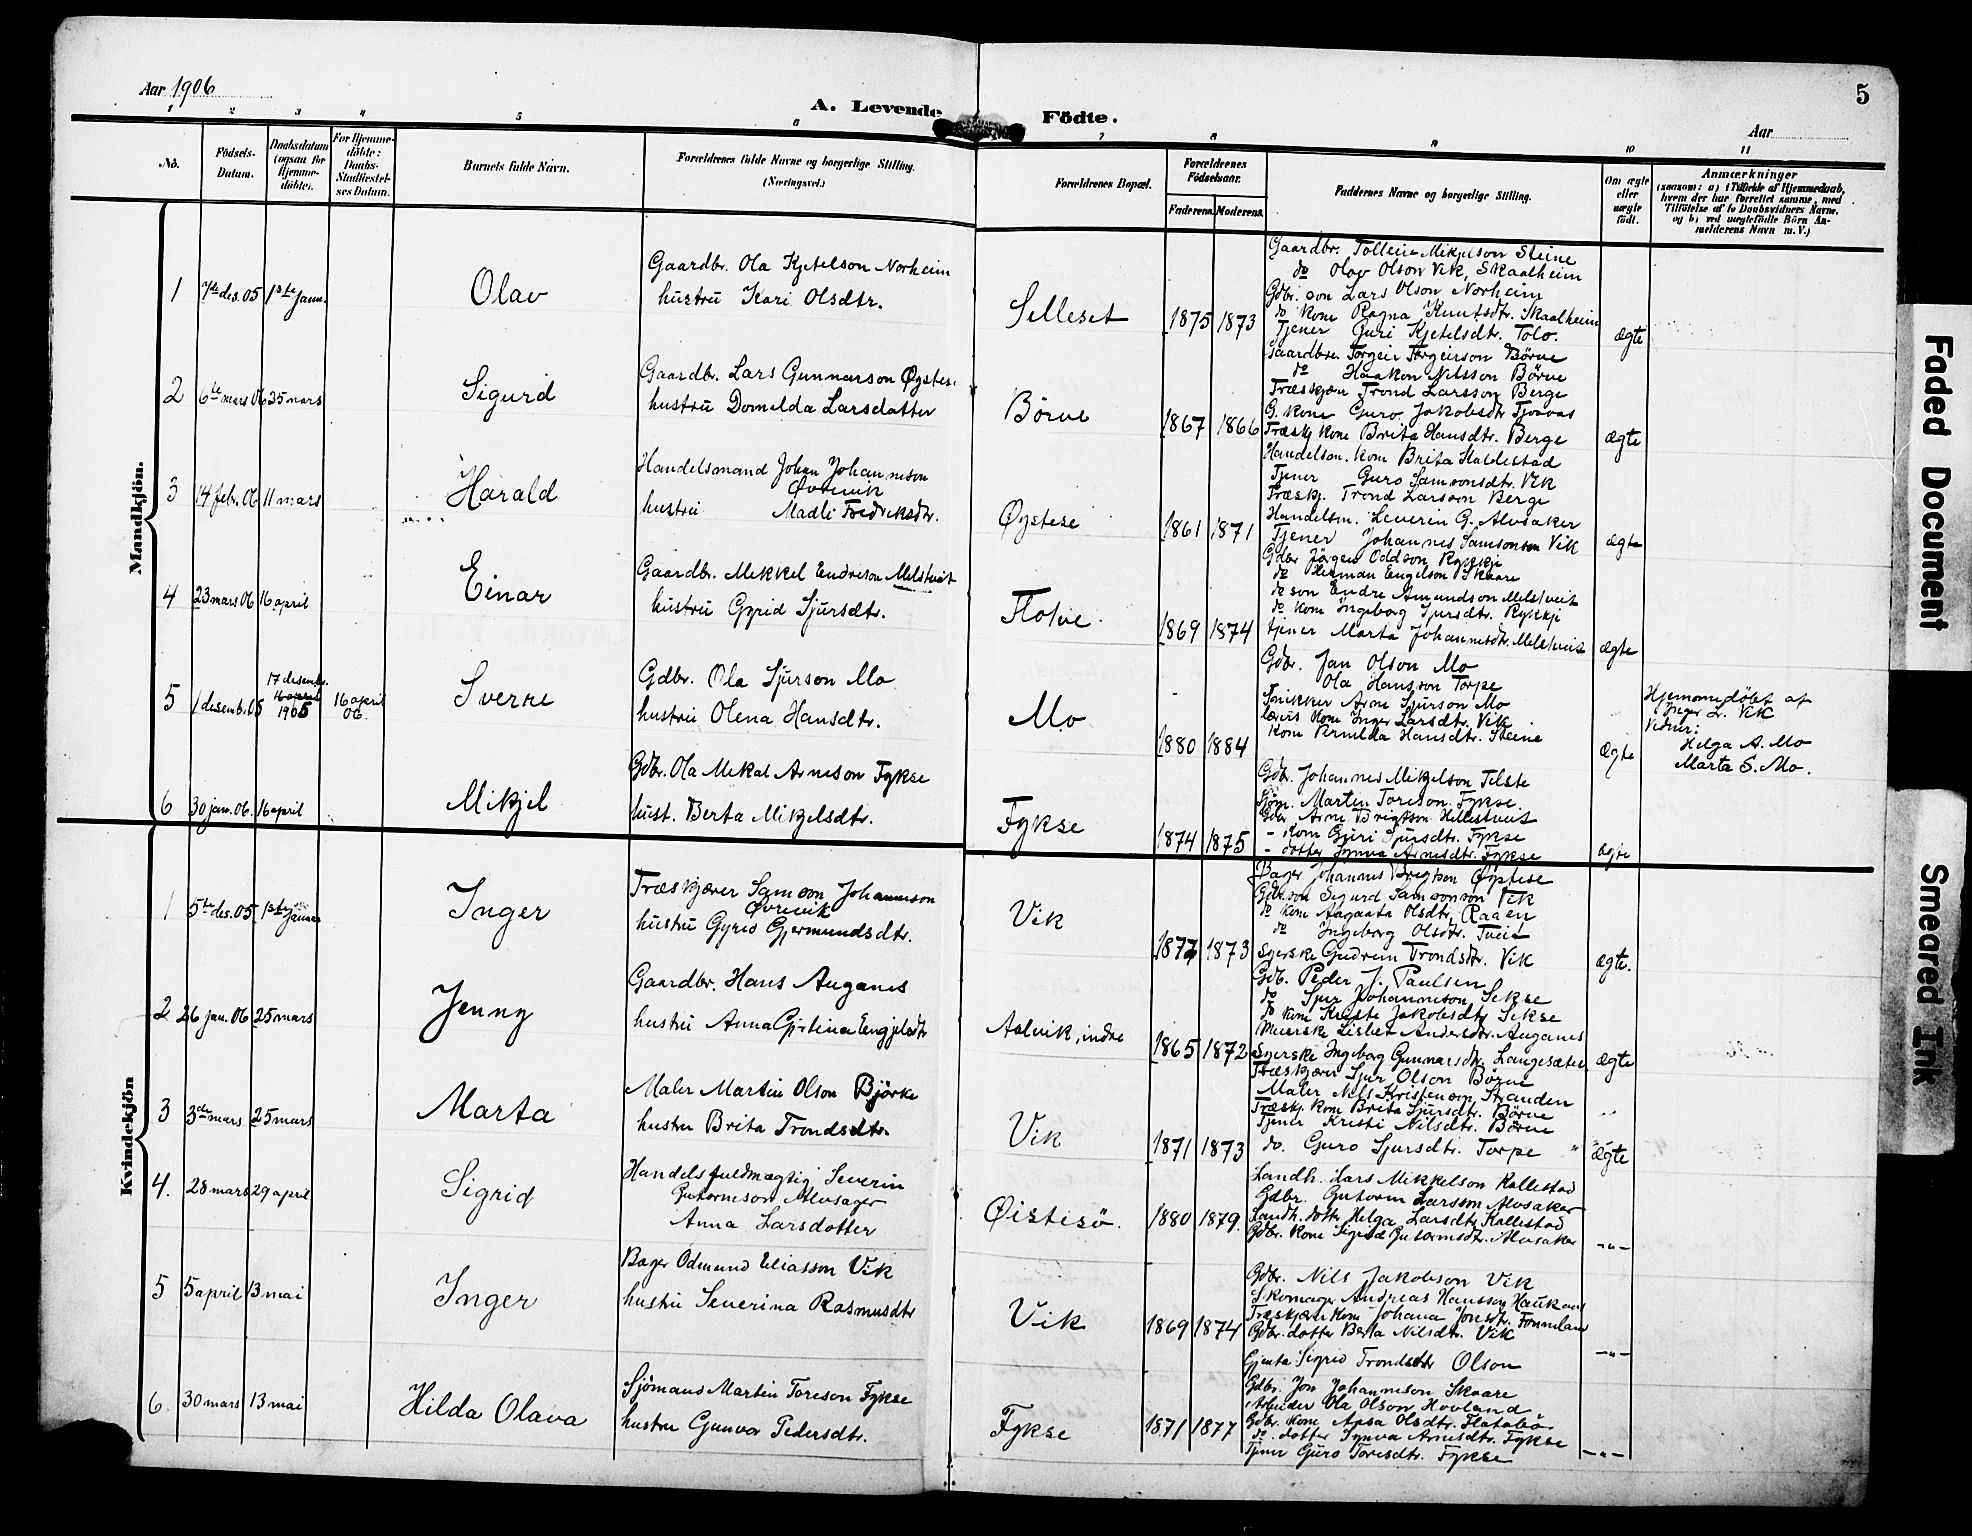 Aar 1906
A. Levende Födte.
5
Aar
1 2 3 4 5 6 7 8 9 10 11
No.
Födsels-
Datum.
Daabsdatum
(ogsaa for
Hjemme-
döbte).
For Hjemme-
döbte:
Daabs-
Stadfæstel-
ses Datum.
Barnets fulde Navn.
Forældrenes fulde Navne og borgerlige Stilling.
(Næringsvei.)
Forældrenes Bopæl.
Forældrenes
Födselsaar.
Faderens. Moderens.
Faddernes Navne og borgerlige Stilling.
Om ægte
eller
uægte
födt.
Anmærkninger
(saasom: a) i Tilfælde af Hjemmedaab,
hvem der har forrettet samme, med
Tilföielse af to Daabsvidners Navne,
og b) ved uægtefödte Börn An-
melderens Navn m. V.)
Mandkjön.
1 7de des. 05 1ste Janu. Olav
Gaardbr. Ola Kjetelson Norheim
hustru Kari Olsdtr.
Selleset 1875 1873
Gaardbr. Tolleiv Mikjelson Steine
do Olav Olson Vik, Skaalheim
Gdbr. son Lars Olson Norheim
do kone Ragna Knutsdtr. Skaalheim
Tjener Guri Kjetelsdtr. Tolo.
ægte
2 6te mars 06 35 mars Sigurd
Gaardbr. Lars Gunnarson Øystese
hustru Domelda Larsdatter
Börve 1867 1866
Gaardbr. Torgeir Torgeirson Börve
do Haakon Nilsson Börve
Træskjær Trond Larsson Berge
G. kone Guro Jakobsdtr
Træskj kone Brita Hansdtr. Berge
ægte
3 14 febr. 06 11 mars Harald
Handelsmand Johan Johannesson
Øvrevik
hustru Madli Fredriksdtr.
Øystese 1861 1871
Handelsm. kone Brita Kallestad
Tjener Guro Samsonsdtr. Vik
Træskj. Trond Larsson Berge
Handelsm. Severin G. Alvsaker
Tjener Johannes Samsonson Vik
ægte
4 23 mars 06 16 april Einar
Gaardbr. Mikkel Endreson Melstveit
hustru Gyrid Sjursdtr.
Flotve 1869 1874
Gdbr Jörgen Oddson Rykkje
do Herman Engelson Skaare
do son Endre Amundson Melstveit
do kone Ingeborg Sjursdtr. Rykkje
tjener Marta Johannesdtr. Melstveit
ægte
5 1 desemb. 05 17 desemb.
16 april
1905 16 april
06. Sverre
Gdbr. Ola Sjurson Mo
hustru Olena Hansdtr.
Mo 1880 1884
Gdbr. Jan Olson Mo
Ola Hansson Torpe
Snikker Arne Sjurson Mo
lærers kone Inger Larsdtr. Vik
kone Pernilda Hansdtr. Steine
Ægte
Hjemmedöbt af
Inger L. Vik
Vidner:
Helga A. Mo
Marta S. Mo.
6 30 jan. 06. 16 april Mikjel
Gdbr. Ola Mikal Arneson Fykse
hust. Berta Mikjelsdtr.
Fykse 1874 1875
Gdbr. Johannes Mikjelson Telste
Sjöm. Martin Toreson Fykse.
Gdbr Arne Brigtson Hillestveit
- kone Guri Sjursdtr. Fykse
- dotter Synva Arnesdtr. Fykse
ægte
Kvindekjön
1 5te des. 05 1ste Januar Inger
Træskjærer Samson Johanneson
Øvrevik
hustru Gyrid Gjermundsdtr.
Vik 1877 1873
Bager Johannes Brigtson Øystese
Gdb. son Sigurd Samsonson Vik
do kone Aagaata Olsdtr. Raaen
do Ingeborg Olsdtr. Tveit
Syerske Gudrun Trondsdtr. Vik
ægte.
2 26 jan. 06 25 mars Jenny
Gaardbr. Hans Auganes
hustru Anna Gjrtina Engjelsdtr
Aalvik, indre 1865 1872
Gdb. Peder J. Paulsen
do Sjur Johanneson Sekse
do kone Kriste Jakobsdtr Sekse
Lisbet Andersdtr. Auganes
Syerske Ingeborg Gunnarsdtr. Langesæter
ægte
3 3de mars 25 mars Marta
Maler Martin Olson Björke
hustru Brita Trondsdtr.
Vik 1871 1873
Træskjærer Sjur Olson Börve
Maler Nils Kristenson Stranden
Træskj. kone Brita Sjursdtr. Börve
Tjener Kristi Nilsdtr. Börve
do. Guro Sjursdtr. Torpe
ægte
4. 28 mars 29 april Sigrid
Handelsfuldmægtig Severin
Gutormson Alvsager
Anna Larsdotter
Øistesö. 1880 1879.
Landh. Lars Mikkelson Kallestad
Gdbr. Gutorm Larsson Alvsaker
Landh. dotter Helga Larsdtr Kallestad
Gdbr. kone Sigrid Gutormsdtr. Alvsaker
-"-
5 5 april 13 mai Inger
Bager Odmund Eliasson Vik
hustru Severina Rasmusdtr
Vik 1869 1874
Gdbr. Nils Jakobson Vik
Skomager Andreas Hansson Haukaas
Træskjærer kone Johana Jonsdtr. Fonneland
Gdbr. dotter Berta Nilsdtr. Vik
Gjenta Sigrid Trondsdtr Olson
-"-
6. 30 mars 13 mai Hilda Olava
Sjömans Martin Toreson Fykse
hustru Gunvor Pedersdtr.
Fykse 1871 1877
Gdbr. Jon Johanneson Skaare
Arbeider Ola Olson Hovland
Gdbr. kone Anna Olsdtr. Flatabö
do. dotter Synva Arnesdtr. Fykse
Tjener Guro Toresdtr. Fykse
-"-
Faded Document
Smeared Ink